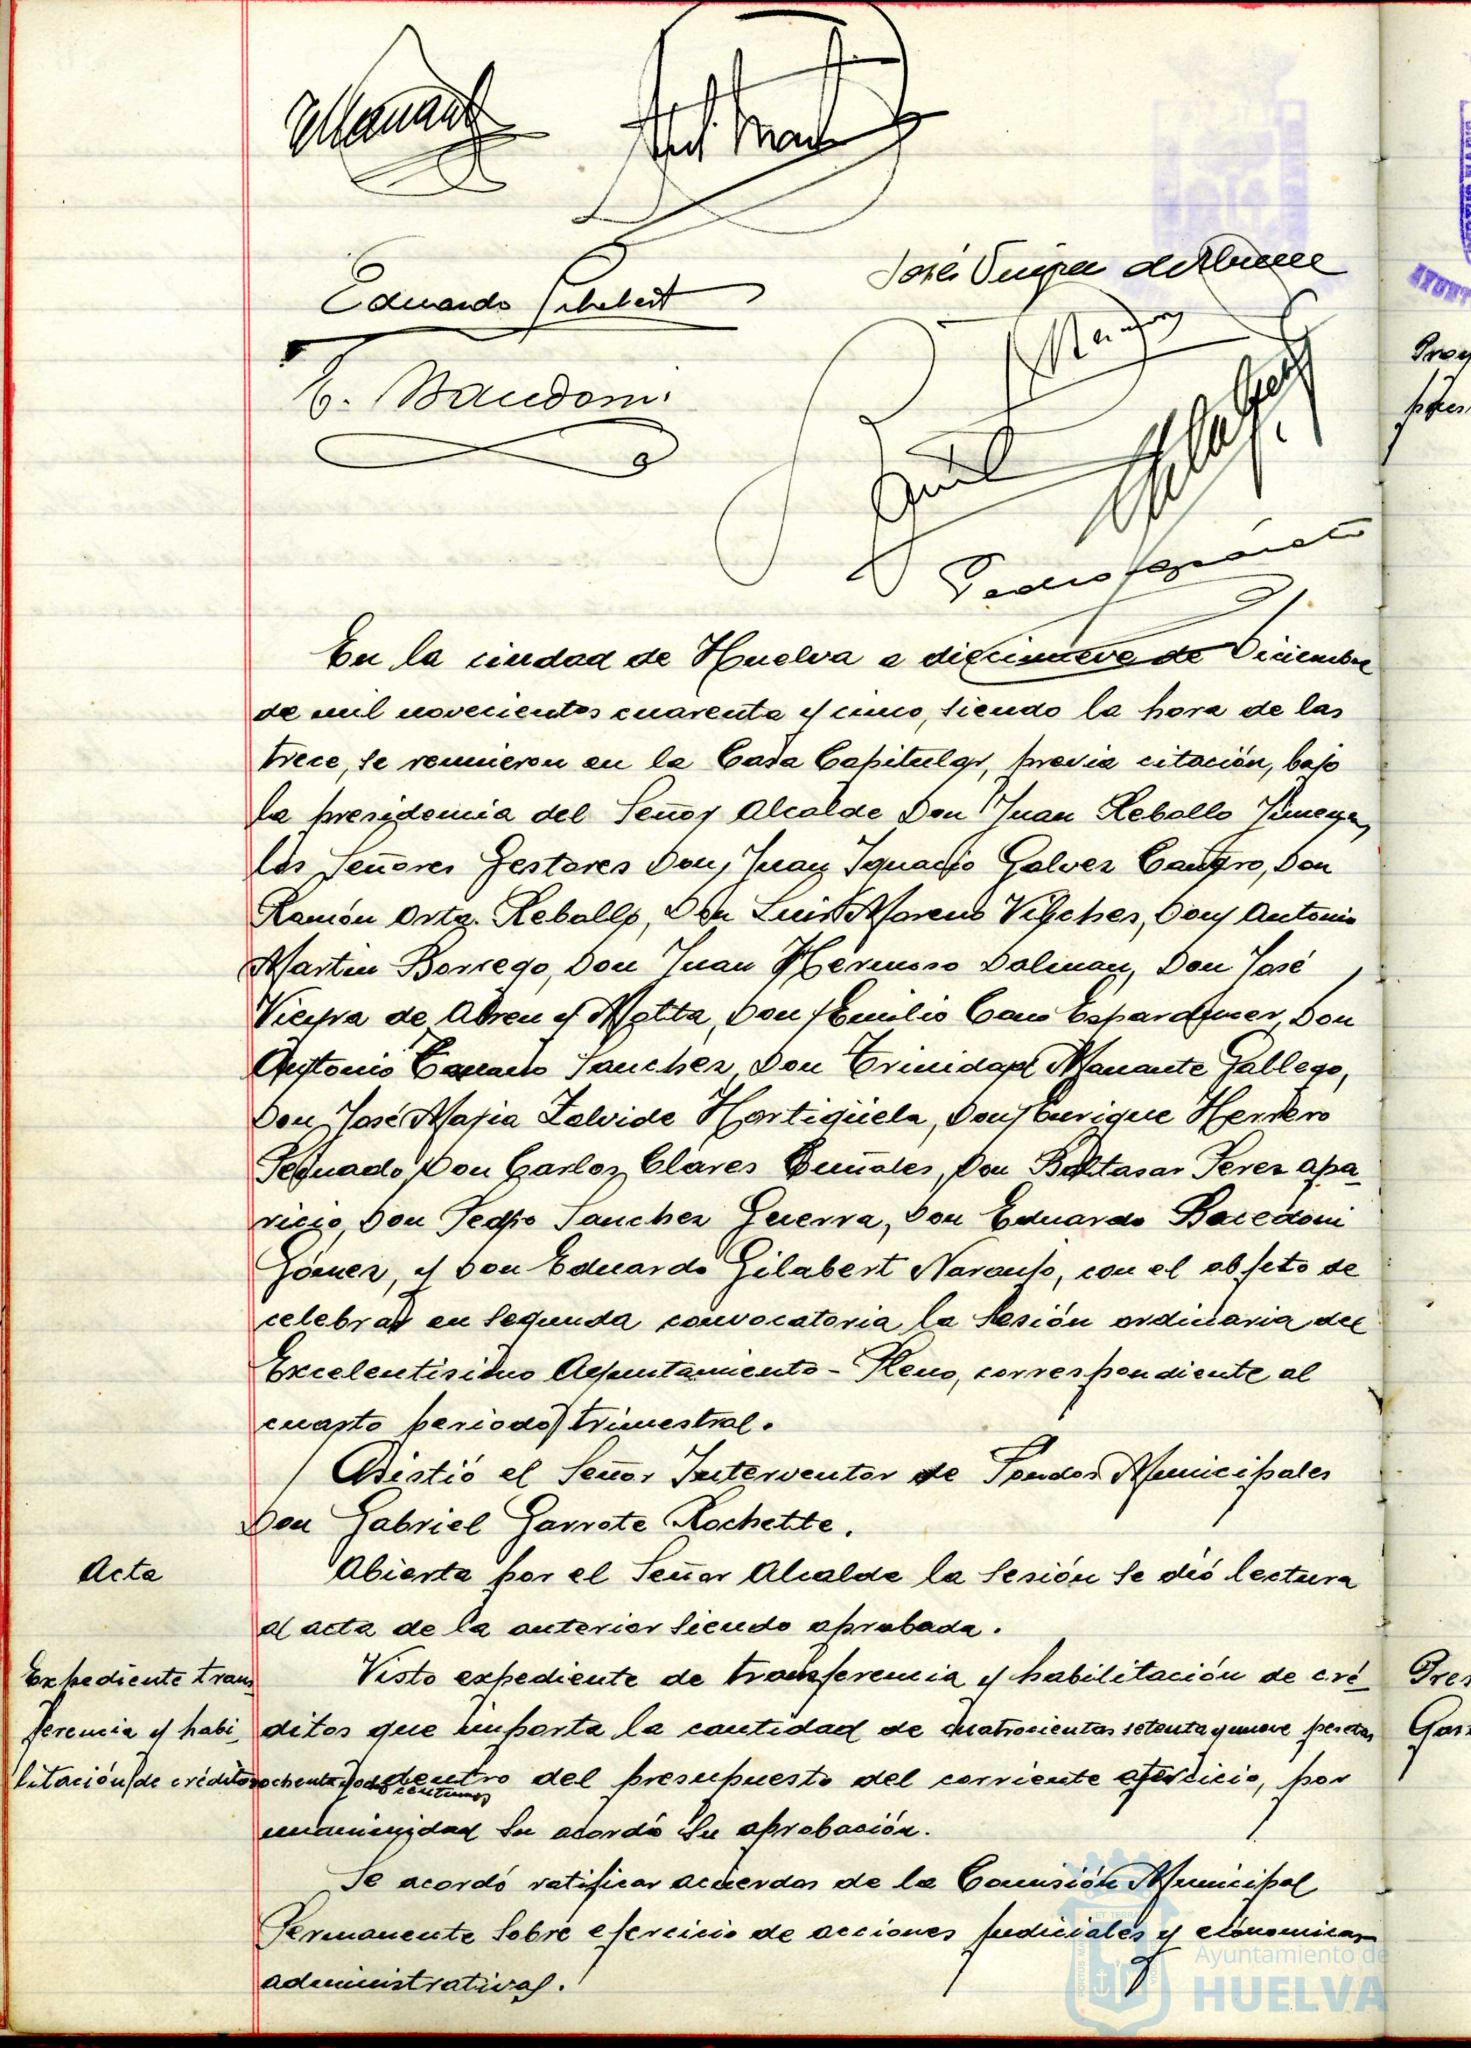 Eduardo Gilabert
José Vieyra de Abreu
E. Bacedoni
En la ciudad de Huelva a diecinueve de Diciembre
de mil novecientos cuarenta y cinco, siendo la hora de las
trece, se reunieron en la Casa Capitular, previa citación, bajo
la presidencia del Señor Alcalde Don Juan Rebollo Jimenez,
los Señores Gestores Don Juan Ignacio Galvez Cañero, Don
Ramón Orta Rebollo, Don Luis Moreno Vilches, Don Antonio
Martin Borrego, Don Juan Hermoso Dolman, Don José
Vieyra de Abreu y Motta, Don Emilio Cano Esparducer, Don
Antonio Sanchez, Don Trinidad Manante Gallego,
Don José Maria Zalvide Hortigüela, Don Enrique Herrero
Peñuado, Don Carlos Clares Buñales, Don Baltasar Perez Apa-
ricio, Don Pedro Sanchez Guerra, Don Eduardo Bacedoni
Gómez, y Don Eduardo Gilabert Naranjo, con el objeto de
celebrar en segunda convocatoria la sesión ordinaria del
Excelentisimo Ayuntamiento-Pleno, correspondiente al
cuarto periodo trimestral.
Asistió el Señor Interventor de Fondos Municipales
Don Gabriel Garrote Rochette.
Acta
Abierta por el Señor Alcalde la sesión se dió lectura
al acta de la anterior siendo aprobada.
Expediente trans
ferencia y habi-
litación de créditos
Visto expediente de transferencia y habilitación de cré-
ditos que importa la cantidad de cuatrocientas setenta y nueve pesetas
ochenta y dos centimos dentro del presupuesto del corriente ejercicio, por
unanimidad se acordó su aprobación.
Se acordó ratificar acuerdos de la Comisión Municipal
Permanente sobre ejercicio de acciones judiciales y ecónomicas
administrativas.
Ayuntamiento de
HUELVA